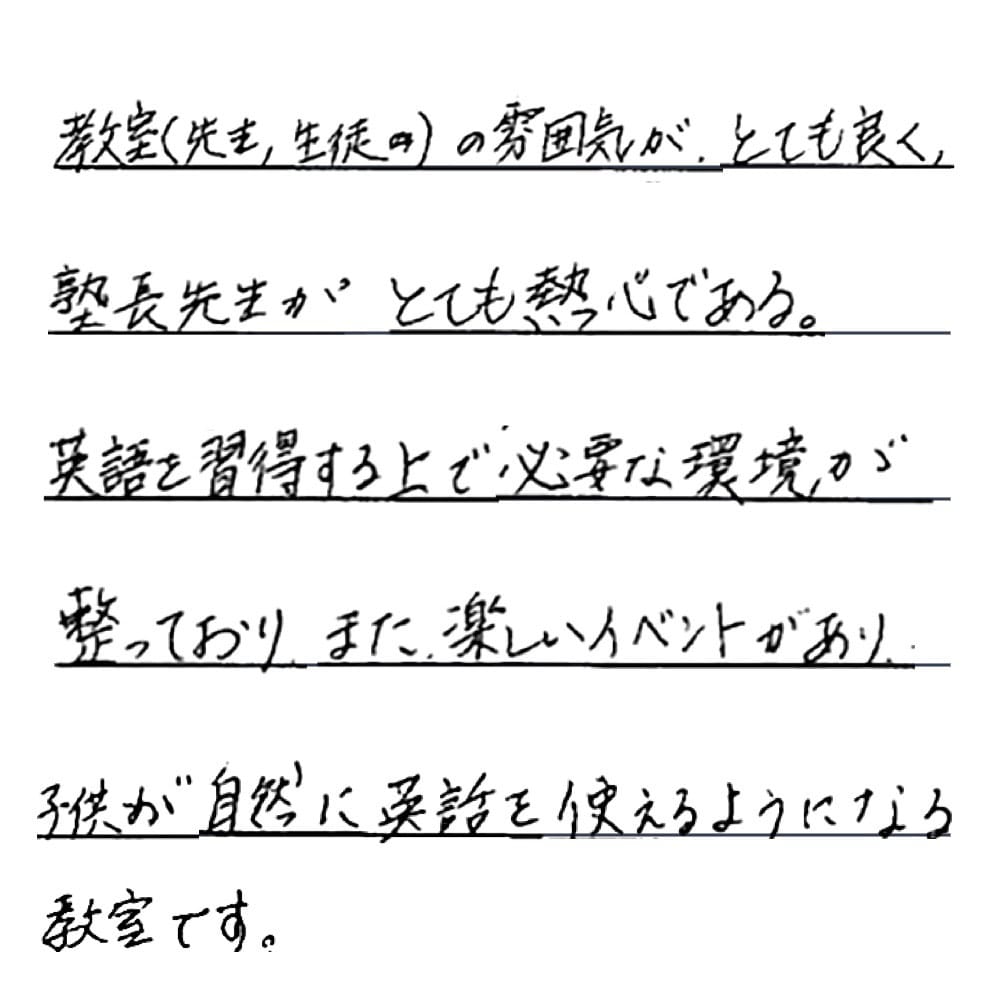 教室(先生,生徒共)の雰囲気が、とても良く,
塾長先生がとても熱心である。
英語を習得する上で必要な環境が
整っており、また、楽しいイベントがあり、
子供が自然に英語を使えるようになる
教室です。